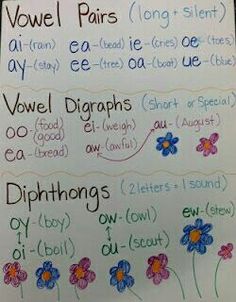 Vowel Pairs (long + silent)
ai-(rain) ea-(bead) ie-(cries) oe-(toes)
ay-(stay) ee-(tree) oa-(boat) ue-(blue)
Vowel Digraphs (Short or Special)
oo-(food) (good) ei-(weigh) au-(August)
ea-(bread) aw-(awful)
Diphthongs (2 letters = 1 sound)
oy-(boy) ow-(owl) ew-(stew)
oi-(boil) ou-(scout)